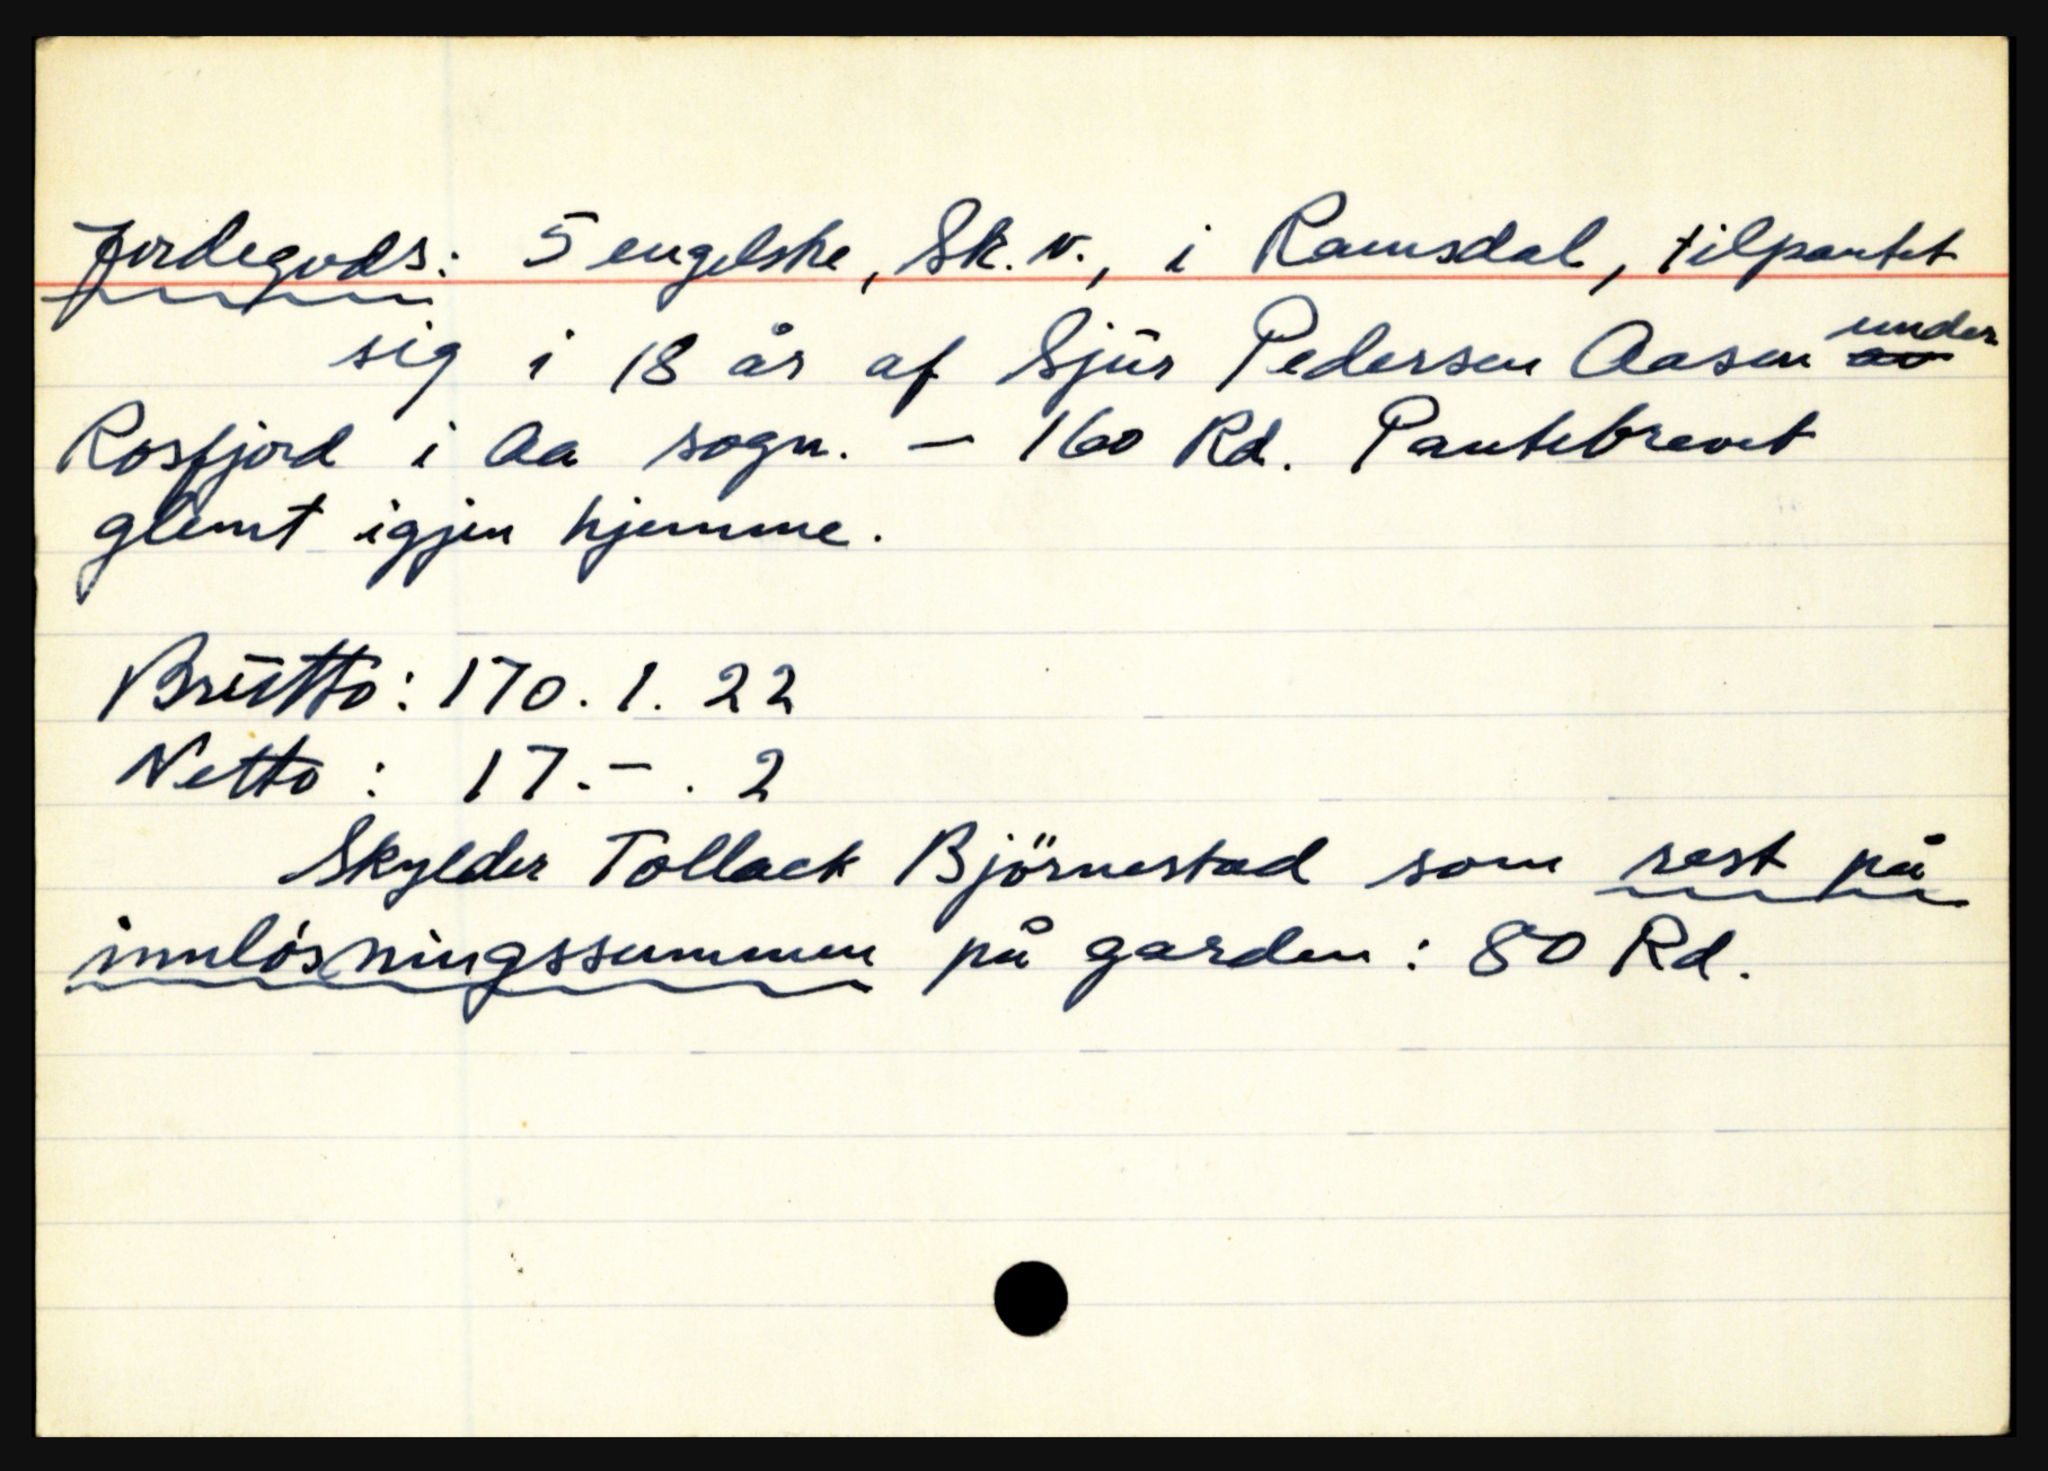 Jordegods: 5 engelske, Sk. v., i Ramsdal, tilpantet
sig i 18 år af Sjur Pedersen Aasen ~~av~~ under
Rosfjord i Aa sogn. – 160 Rd. Pantebrevet
glemt igjen hjemme.
Brutto: 170. 1. 22
Netto: 17. – . 2
Skylder Tollack Björnestad som rest på
innlösningssummen på garden: 80 Rd.